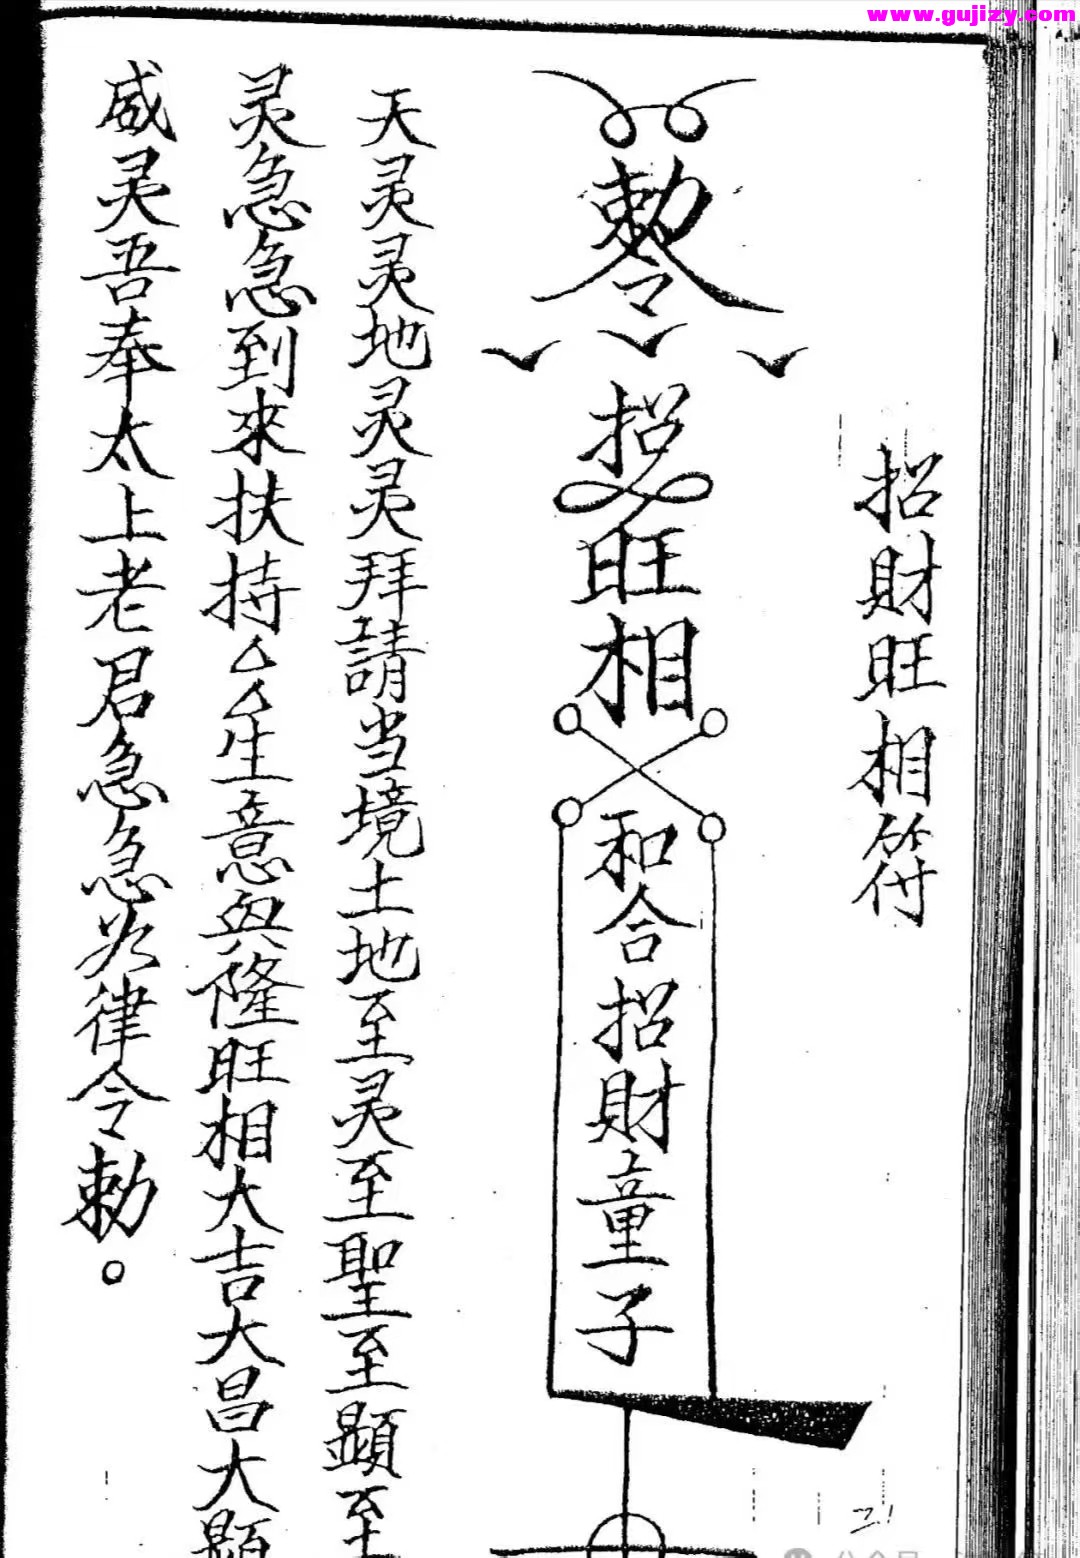 www.gujizy.com
招財旺相符
敕令
招
旺相
和合招財童子
天灵灵地灵灵拜請当境土地至灵至聖至顯至
灵急急到來扶持厶厶生意興隆旺相大吉大昌大顕
威灵吾奉太上老君急急为律令勅。
21
公众号